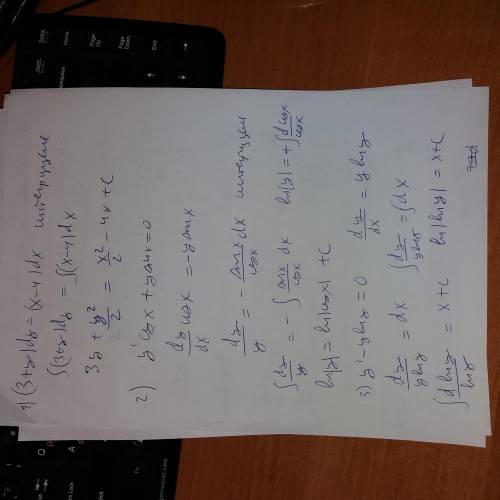 1) (3+y)dy = (x-4)dx интегрируем
∫(3+y)dy = ∫(x-4)dx
3y + y²/2 = x²/2 - 4x + C
2) y' cosx + y sinx = 0
dy/dx cosx = -y sinx
dy/y = - sinx/cosx dx интегрируем
∫ dy/y = - ∫ sinx/cosx dx ln|y| = + ∫ dcosx/cosx
ln|y| = ln|cosx| + C
3) y' - y lny = 0 dy/dx = y lny
dy/(y lny) = dx ∫ dy/(y lny) = ∫dx
∫ d lny/lny = x + C ln|lny| = x + C